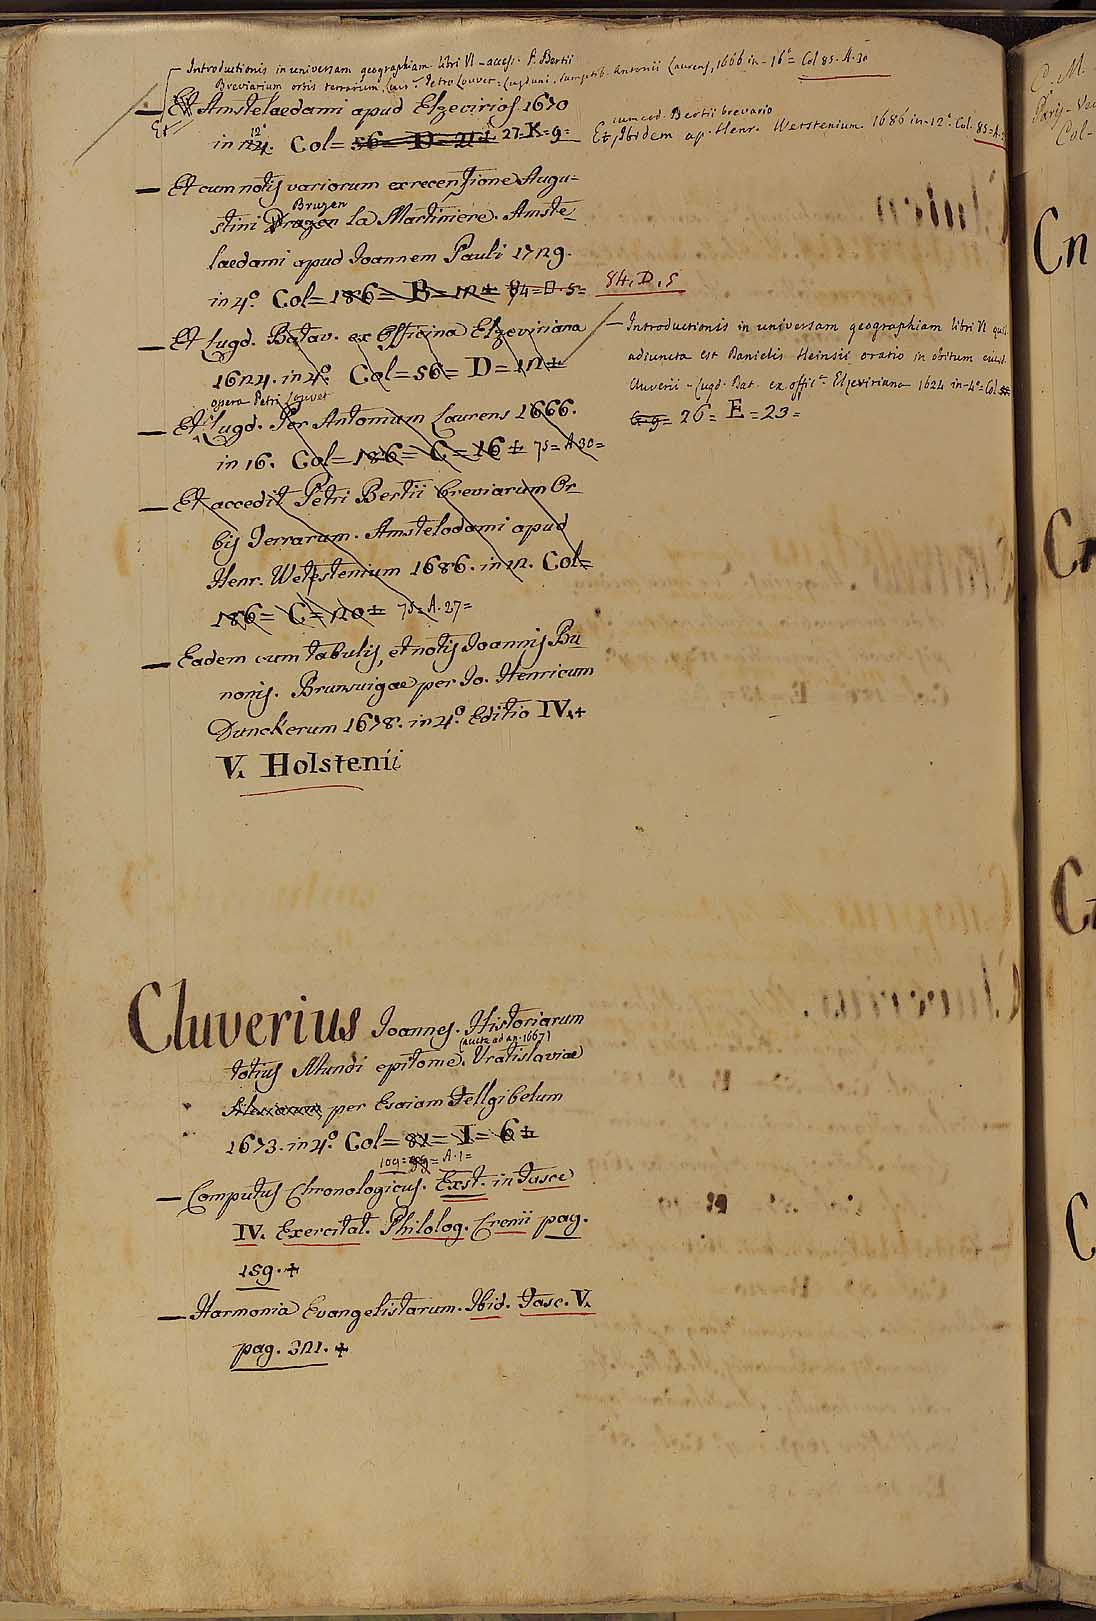 Introductionis in universam geographiam libri VI - access. P. Bertii
Breviarium orbis terrarum, cura Petro Louvet. Lugduni, sumptib. Antonii Laurens, 1666 in-16° Col 85. A. 30
— Et Amstelaedami apud Elzevirios 1670
Et
in 12° 24. Col= 56= D= 21+ 27. K=9=
— Et cum notis variorum ex recensione Augu=
Bruzen
stini Bruzen la Martiniere. Amste=
laedami apud Joannem Pauli 1729.
in 4° Col= 186= B= 12+ 84=D. 5= 84. D. 5
— Et Lugd. Batav. ex Officina Elzeviriana
1624. in 4° Col= 56= D= 12+
opera Petri Louvet
— Et Lugd. Per Antonium Laurens 1666.
in 16. Col= 186= C= 16+ 75= A 30=
— Et accedit Petri Bertii breviarum Or=
bis Terrarum. Amstelodami apud
Henr. Wetstenium 1686. in 12. Col=
186= C= 20+ 75= A. 27=
— Eadem cum tabulis, et notis Joannis Bu=
nonis. Brunsuigae per Jo. Henricum
Dunckerum 1678. in 4° Editio IV.+
V. Holstenii
cum eod. Bertii brevario
Et Ibidem ap. Henr. Werstenium 1686 in-12° Col. 85= A.
— Introductionis in universam geographiam libri VI
adiuncta est Danielis Heinsii oratio in obitum
Cluverii - Lugd. Bat. ex offic. Elzeviriana 1624 in-4° Col
26= E= 23=
Cluverius Joannes. Historiarum
(aucta ad an. 1667)
totius Mundi epitome. Vratislaviae
per Esaiam Fellgibelum
1673. in 4° Col= 82= I= 6+
109= 89= A. 1=
— Computus Chronologicus. Exst. in Fasce
IV. Exercitat. Philolog. Crenii pag.
159.+
— Harmonia Evangelistarum. Ibid. Fasc. V.
pag. 321.+
C. M.
Col-
Cn
C
C
C